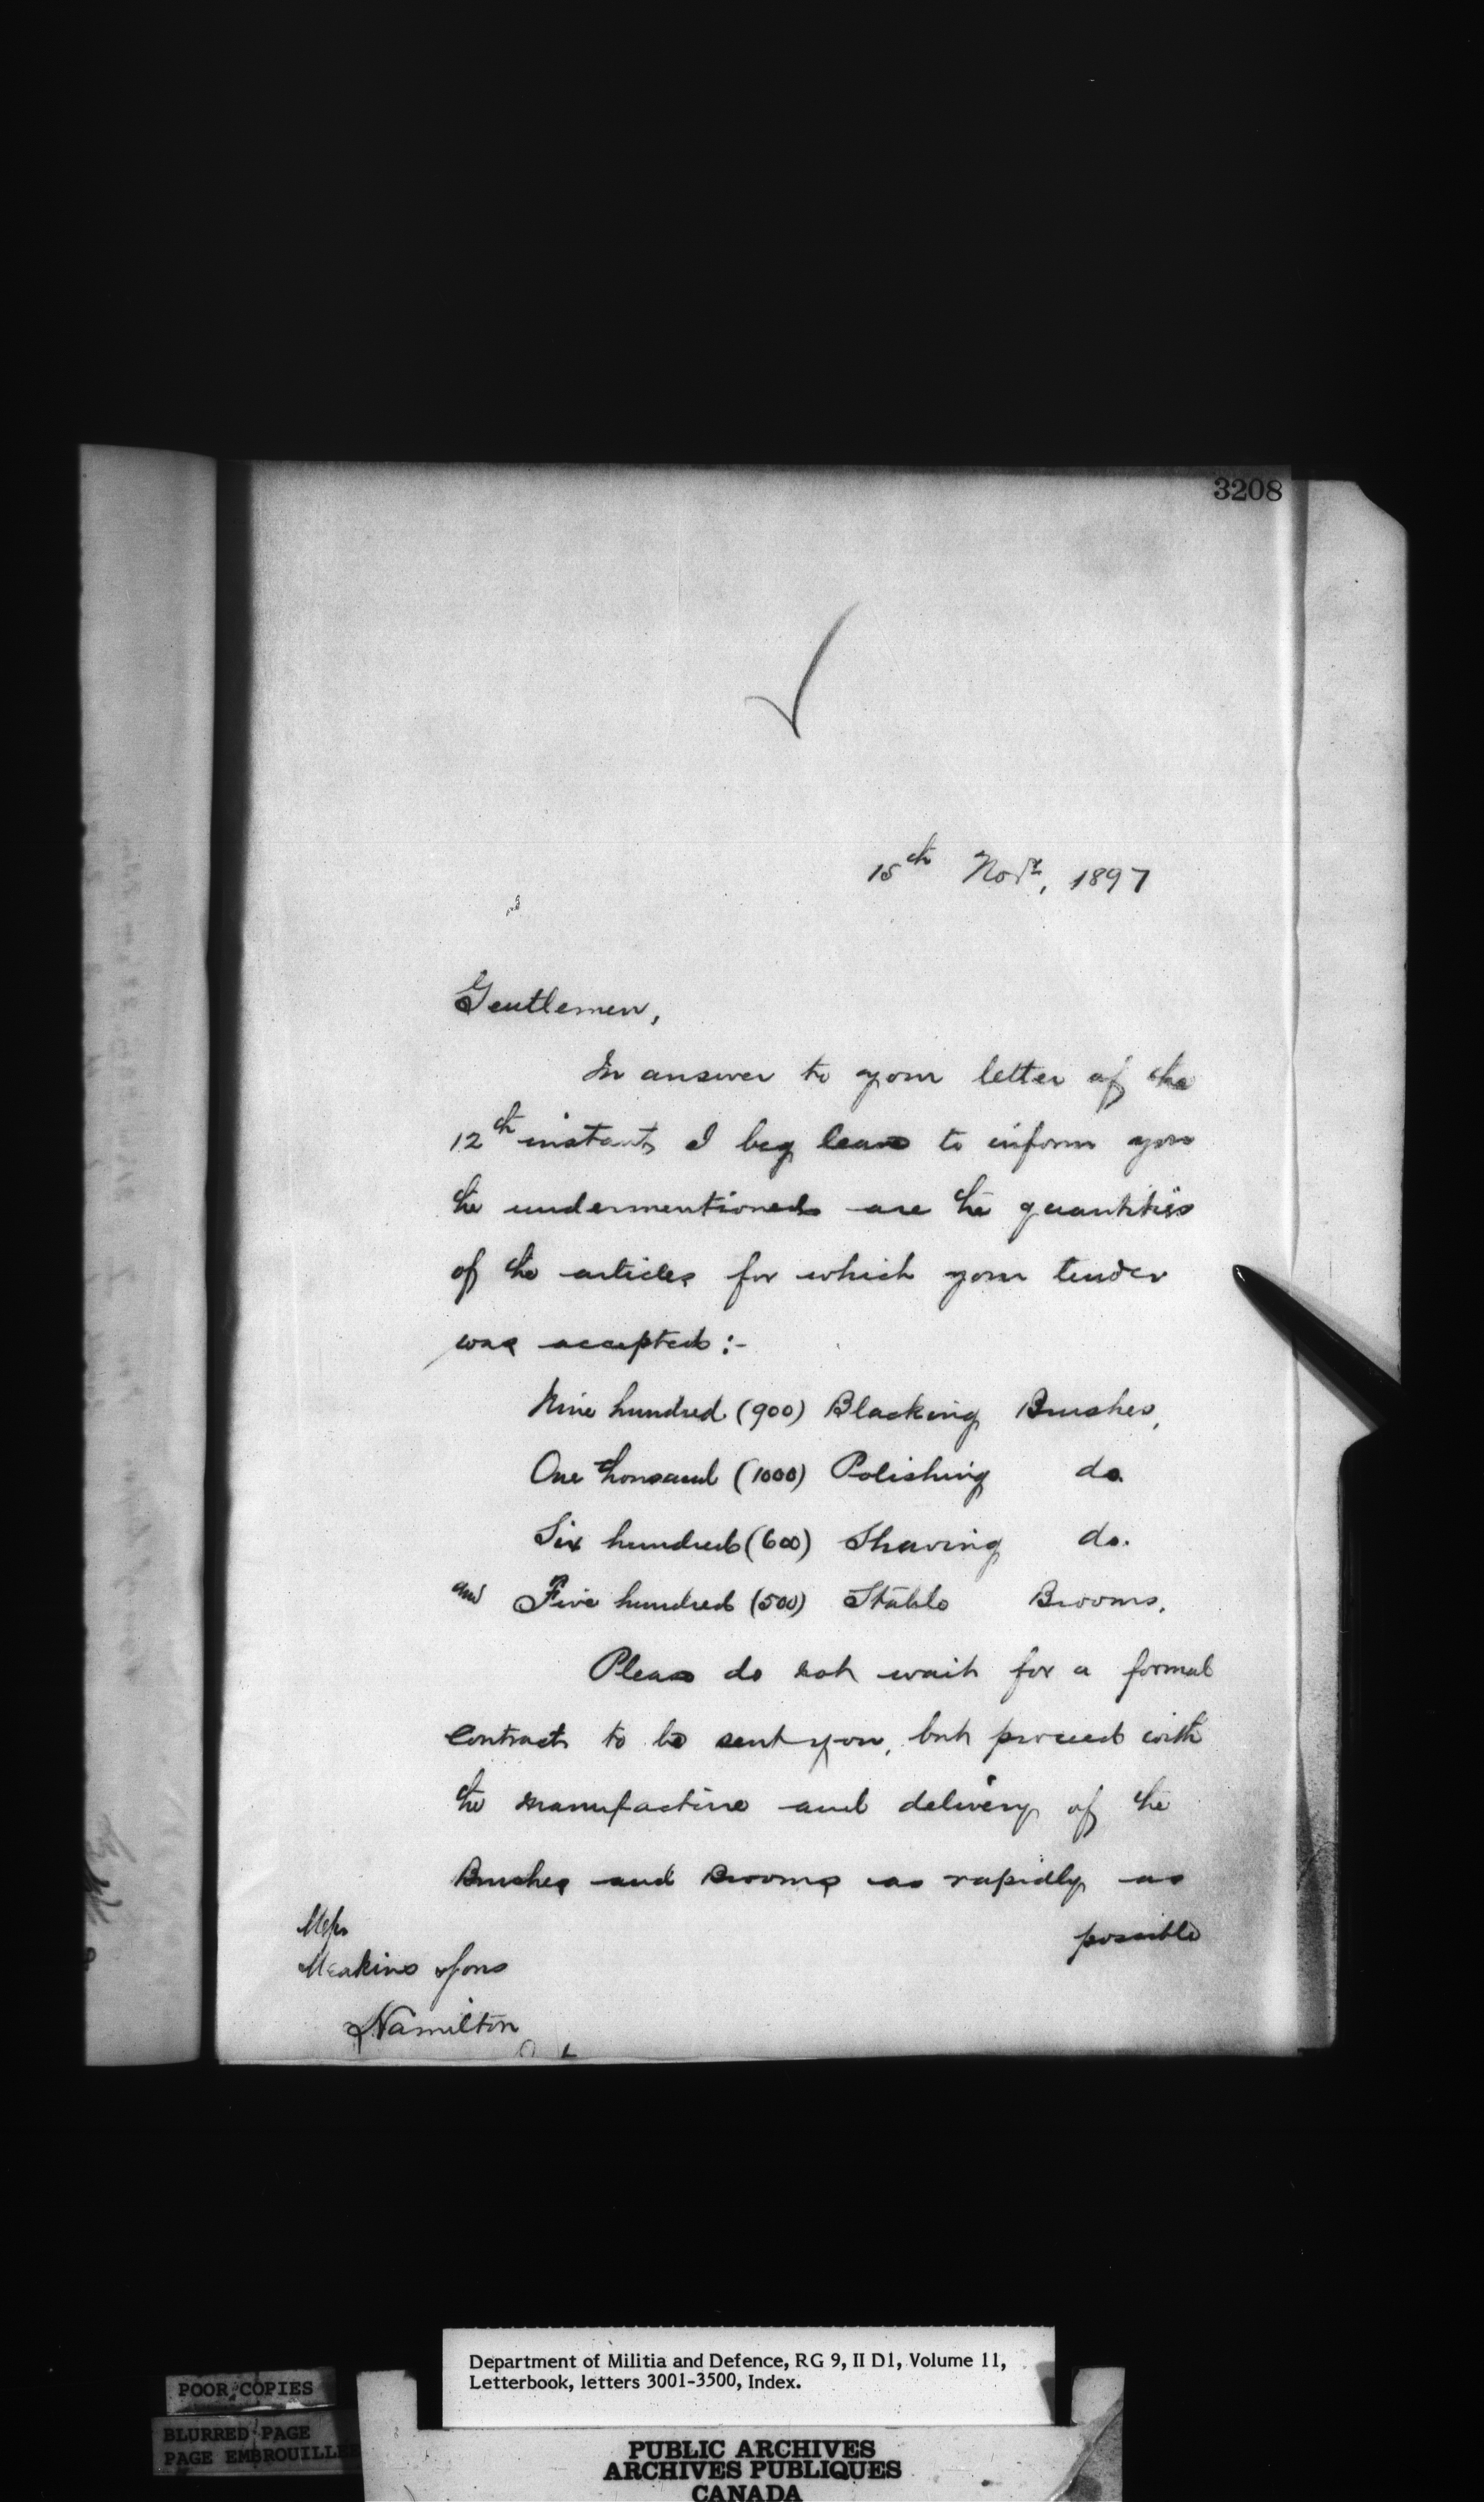 3208
15th Novr, 1897
Gentlemen,
In answer to your letter of the
12th instant, I beg leave to inform you
the undermentioned are the quantities
of the articles for which your tender
was accepted :-
Nine hundred (900) Blacking Brushes,
One thousand (1000) Polishing do.
Six hundred (600) Shaving do.
and Five hundred (500) Stable Brooms.
Please do not wait for a formal
contract to be sent you, but proceed with
the manufacture and delivery of the
Brushes and Brooms as rapidly as
possible
Messrs
Meakins & Sons
Hamilton
Department of Militia and Defence, RG 9, II D1, Volume 11,
Letterbook, letters 3001-3500, Index.
POOR COPIES
BLURRED PAGE
PAGE EMBROUILLEE
PUBLIC ARCHIVES
ARCHIVES PUBLIQUES
CANADA